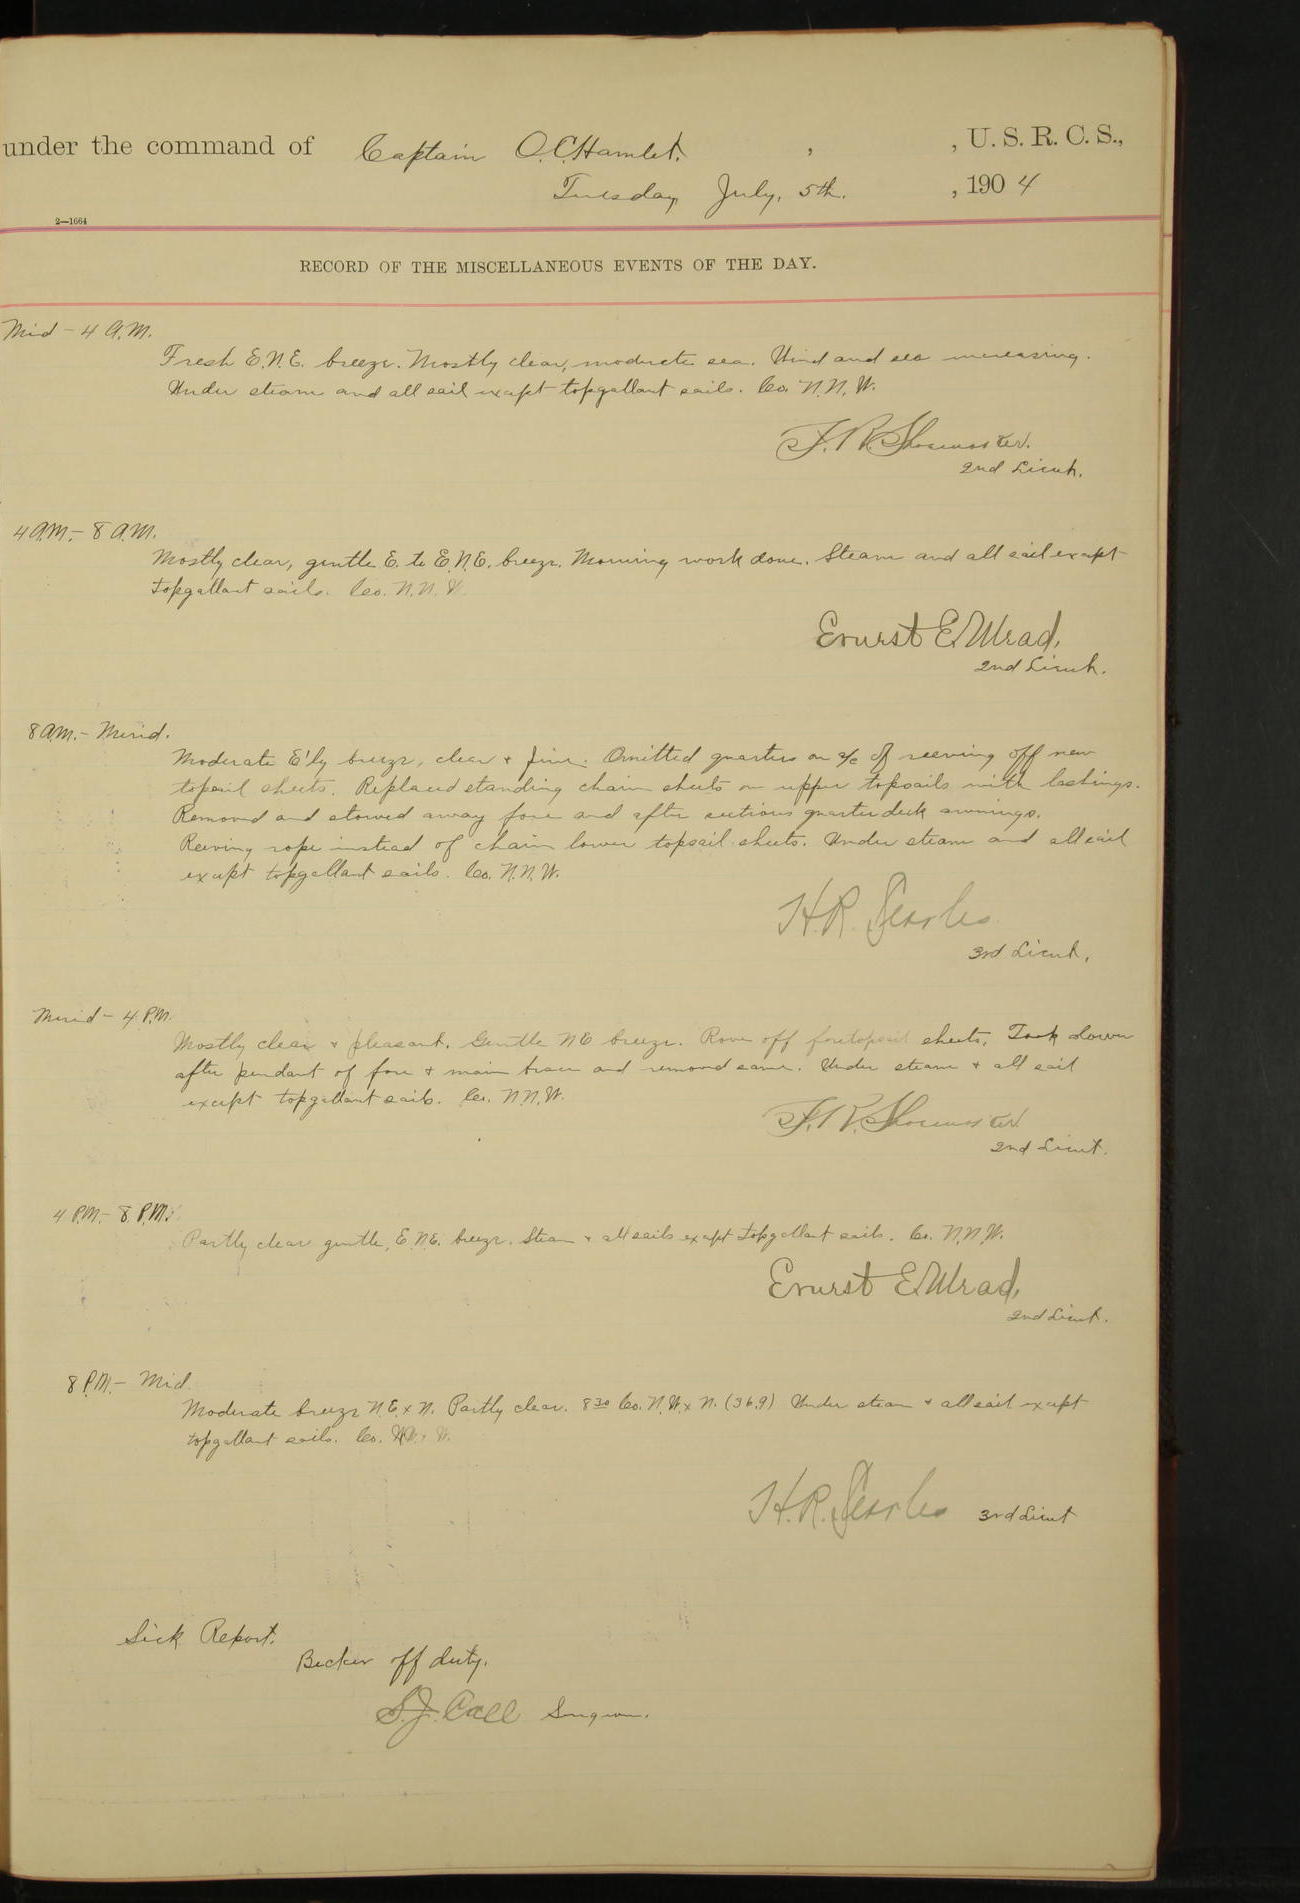 under the command of Captain O.C.Hamlet. , , U. S. R. C. S.,
Tuesday July, 5th. , 1904
2—1664
RECORD OF THE MISCELLANEOUS EVENTS OF THE DAY.
Mid - 4 A.M.
Fresh E.N.E. breeze. Mostly clear, moderate sea. Wind and sea increasing.
Under steam and all sail except topgallant sails. Co. N.N.W.
F.R.Shoemaker.
2nd Lieut.
4 A.M. - 8 A.M.
Mostly clear, gentle E. to E.N.E. breeze. Morning work done. Steam and all sail except
topgallant sails. Co. N.N.W.
Ernest E. Mead,
2nd Lieut.
8 A.M. - Merid.
Moderate E'ly breeze, clear + fine. Omitted quarters on a/c of reeving off new
topsail sheets. Replaced standing chain sheets on upper topsails with lashings.
Removed and stowed away fore and after sections quarterdeck awnings.
Reeving rope instead of chain lower topsail sheets. Under steam and all sail
except topgallant sails. Co. N.N.W.
H.R. Searles
3rd Lieut.
Merid - 4 P.M.
Mostly clear + pleasant. Gentle NE breeze. Rove off foretopsail sheets. Took down
after pendant of fore + main brace and removed same. Under steam + all sail
except topgallant sails. Co. N.N.W.
F.R.Shoemaker
2nd Lieut.
4 P.M. - 8 P.M.
Partly clear gentle, E.N.E. breeze. Steam + all sails except topgallant sails. Co. N.N.W.
Ernest E. Mead,
2nd Lieut.
8 P.M. - Mid.
Moderate breeze N.E. x N. Partly clear. 8 30 Co. N.W. x N. (36.9) Under steam + all sail except
topgallant sails. Co.
H.R. Searles 3rd Lieut
Sick Report.
Becker off duty.
S.J. Call Surgeon.